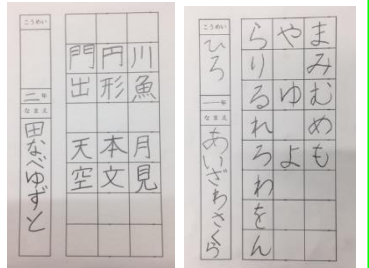 川魚
月見
円形
本文
門出
天空
こうめい
二年
なまえ
田なべゆずと
まみむめも
やゆよ
らりるれろわをん
こうめい
ひろ
一年
なまえ
あいざわさくら